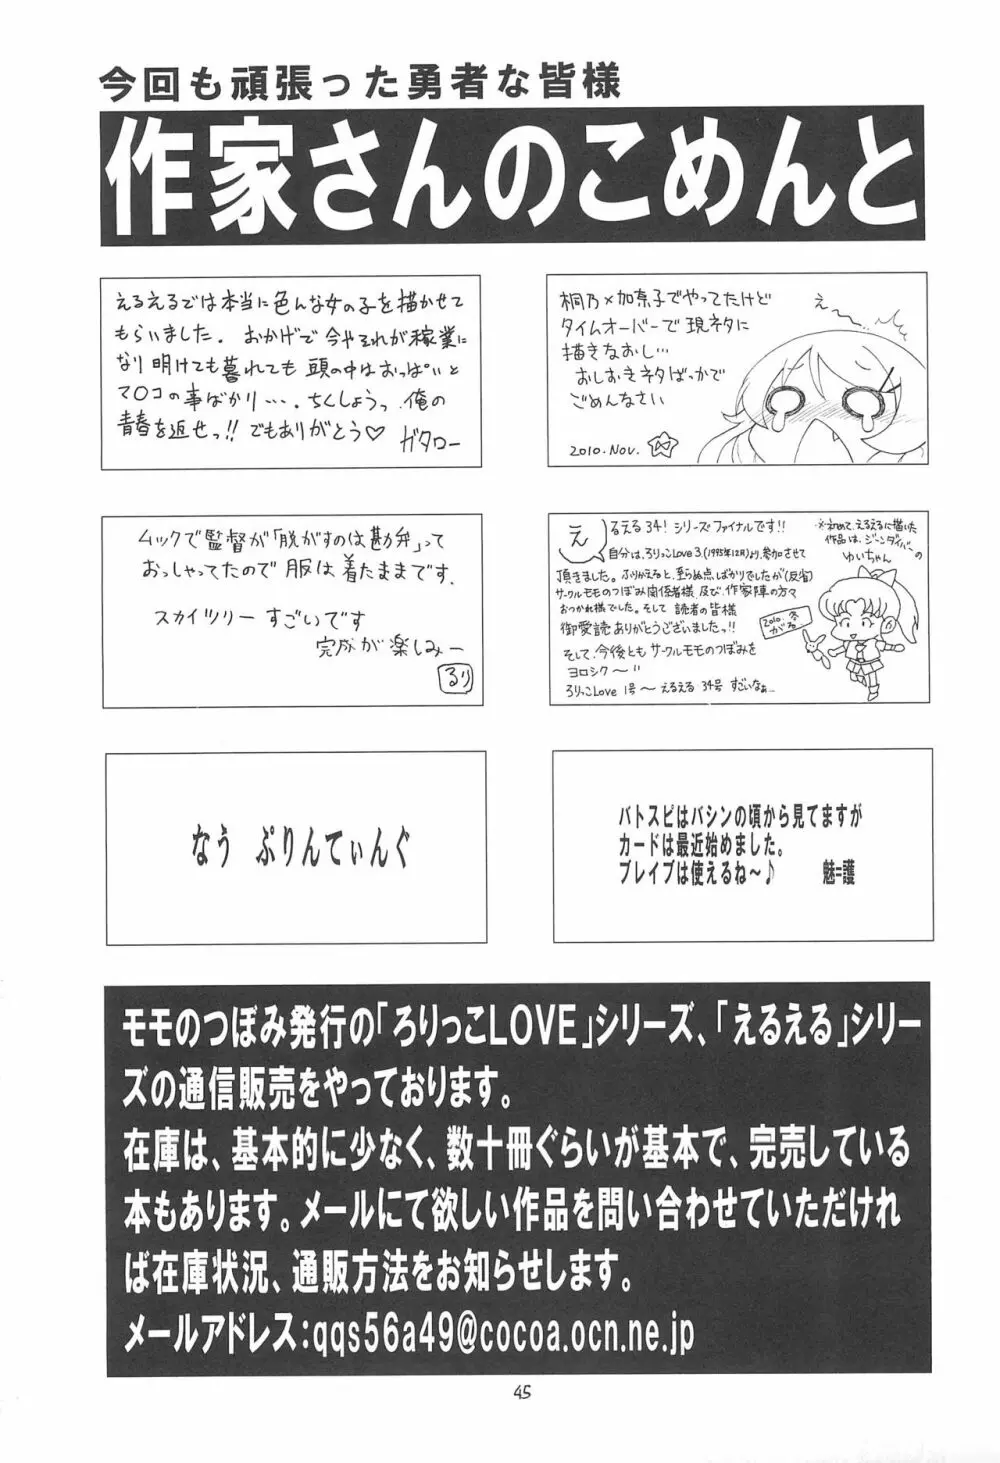 今回も頑張った勇者な皆様
作家さんのこめんと
えるえるでは本当に色んな女の子を描かせて
もらいました。おかげで今やそれが稼業に
なり明けても暮れても頭の中はおっぱいと
マ〇コの事ばかり…。ちくしょうっ俺の
青春を返せっ!!でもありがとう♡
ガタロー
桐乃×加奈子でやってたけど
タイムオーバーで現ネタに
描きなおし…
おしおきネタばっかで
ごめんなさい
え〜
2010.Nov.
ムックで監督が「脱がすのは勘弁」って
おっしゃってたので服は着たままです.
スカイツリーすごいです
完成が楽しみー
るり
えるえる34!シリーズファイナルです!!
自分は、ろりっこLove3.(1995年12月)より、参加させて
頂きました。ふりかえると、至らぬ点しばかりでしたが(反省)
サークルモモのつぼみ関係者様、及び、作家陣の方々
おつかれ様でした。そして読者の皆様
御愛読ありがとうございましたっ!!
そして、今後ともサークルモモのつぼみを
ヨロシク〜''
ろりっこLove 1号〜えるえる34号 すごいなぁ…
※初めて、えるえるに描いた
作品は、ジーンダイバーの
ゆいちゃん
2010.冬
がる.
なう ぷりんてぃんぐ
バトスピはバシンの頃から見てますが
カードは最近始めました。
ブレイブは使えるね〜♪ 魅=護
モモのつぼみ発行の「ろりっこLOVE」シリーズ、「えるえる」シリー
ズの通信販売をやっております。
在庫は、基本的に少なく、数十冊ぐらいが基本で、完売している
本もあります。メールにて欲しい作品を問い合わせていただけれ
ば在庫状況、通販方法をお知らせします。
メールアドレス:qqs56a49@cocoa.ocn.ne.jp
45